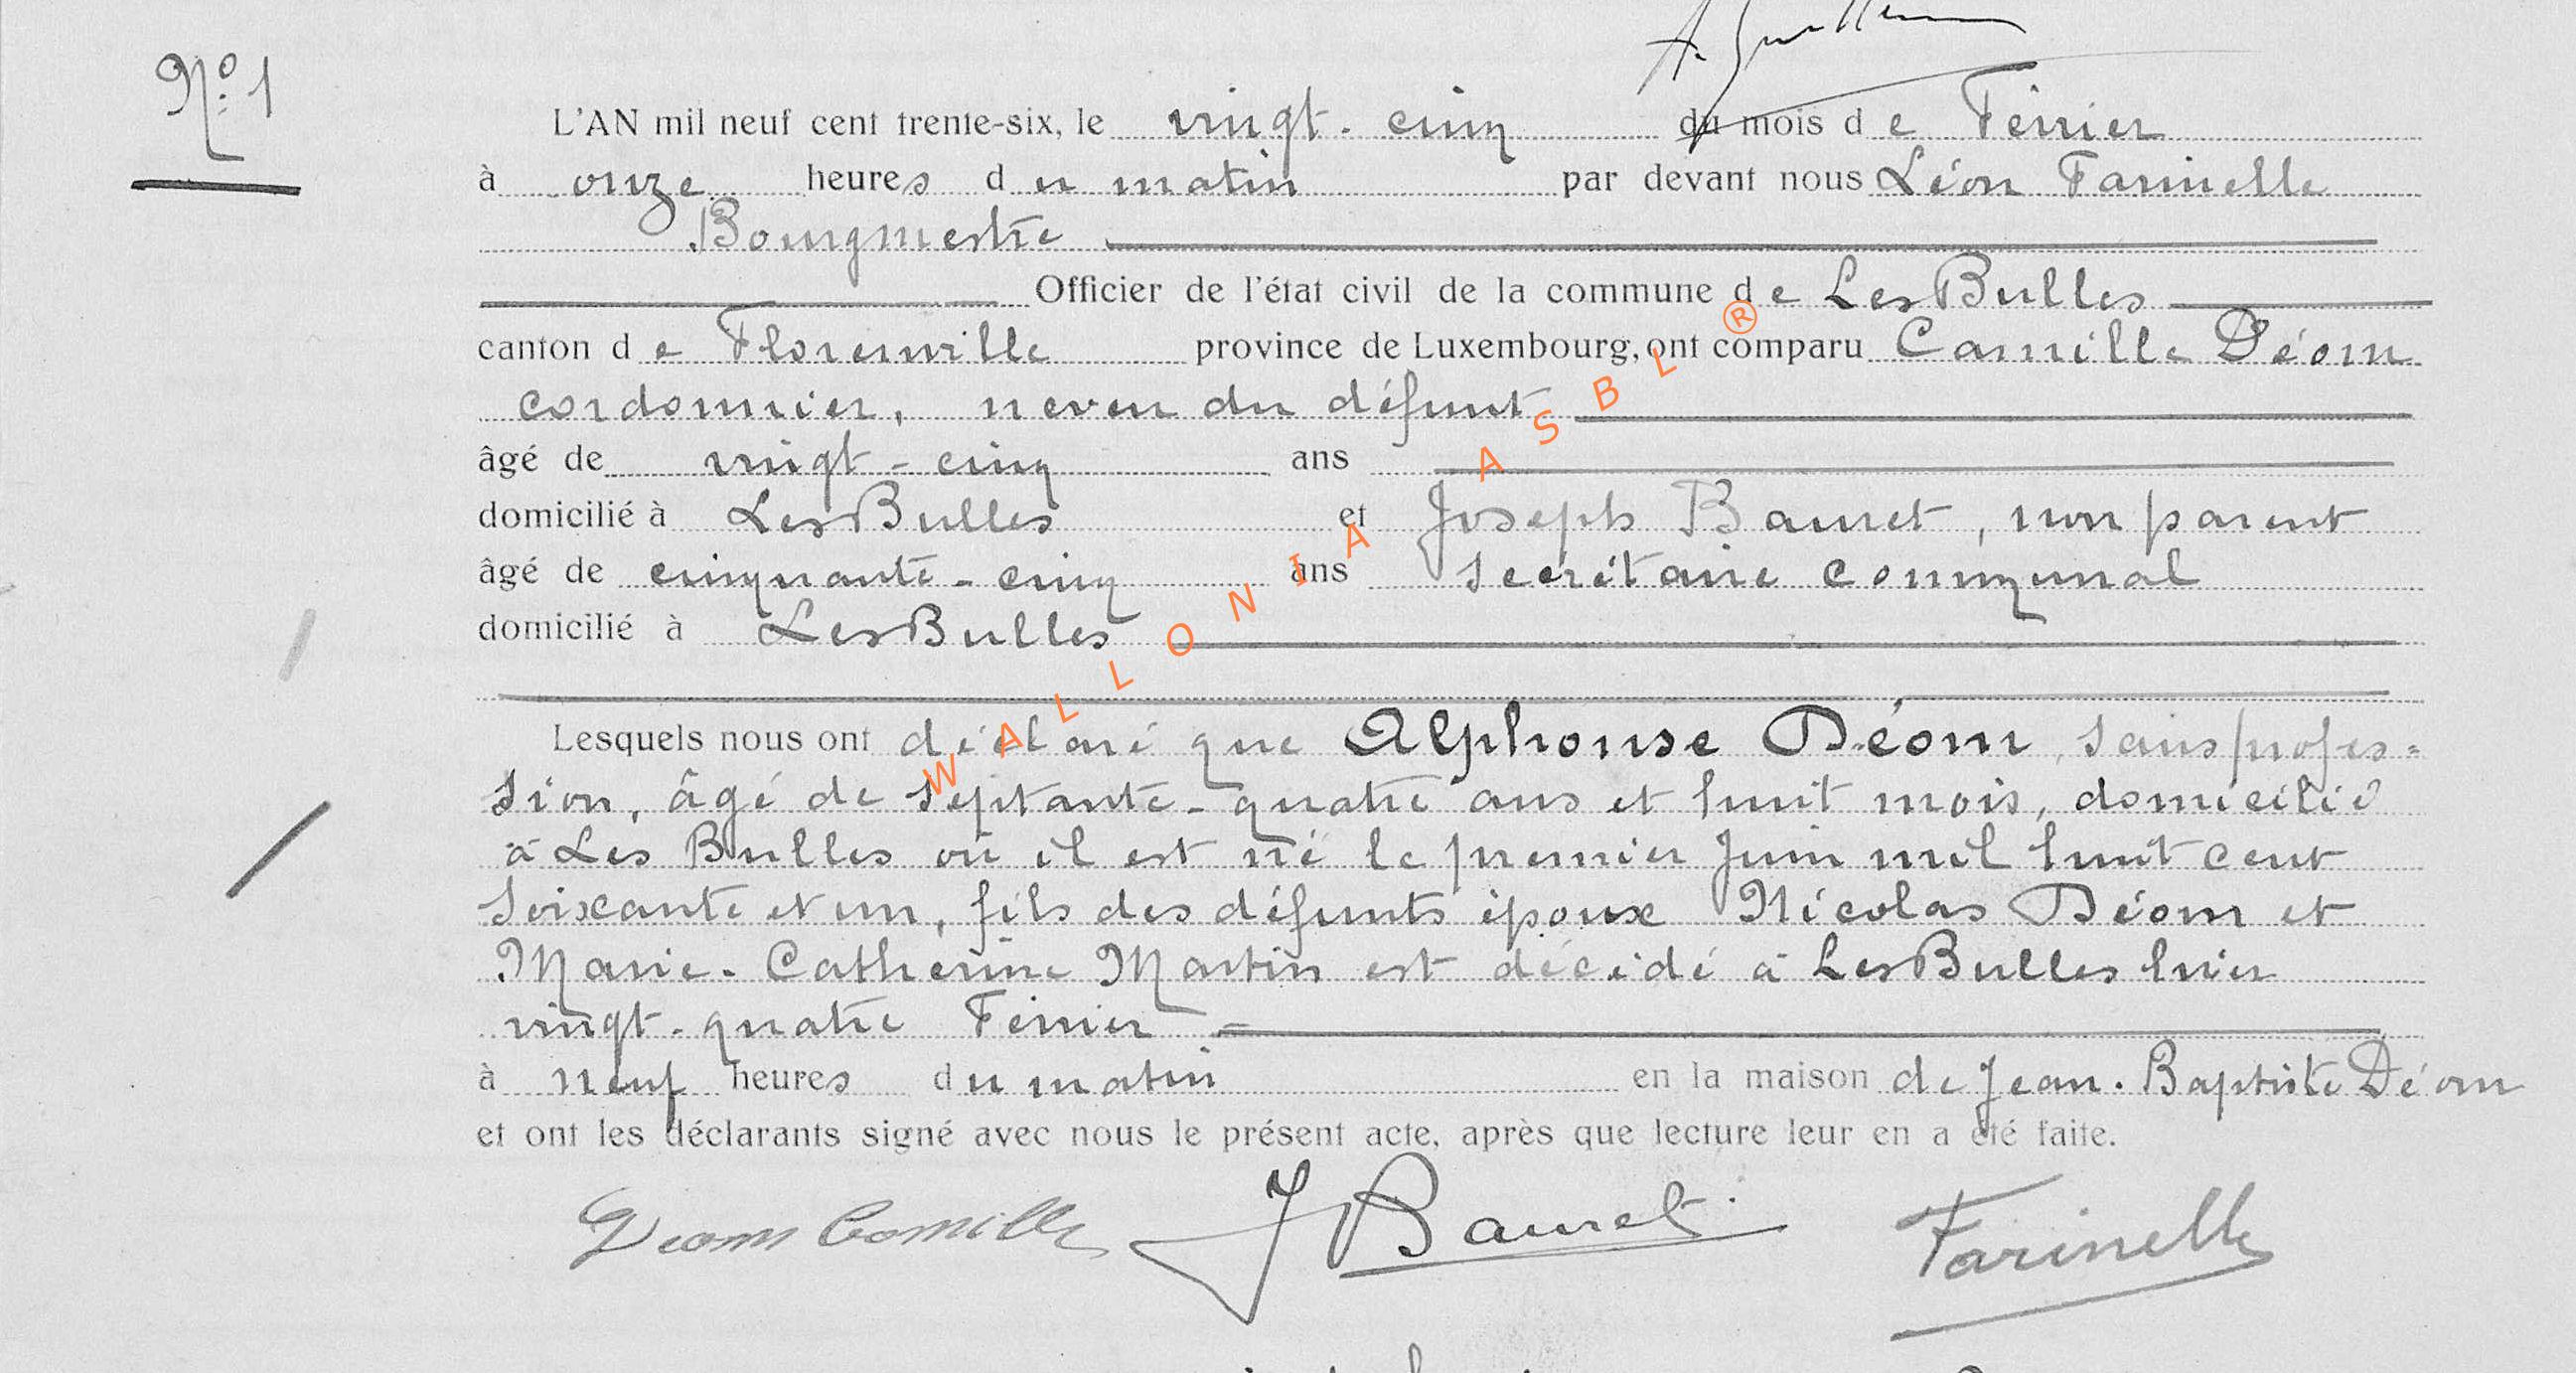 Nº 1
L'AN mil neuf cent trente-six, le vingt-cinq du mois de Février
à onze heures du matin par devant nous Léon Farinelle
Bourgmestre
Officier de l'état civil de la commune de Les Bulles
canton de Florenville province de Luxembourg, ont comparu Camille Déom
cordonnier, neveu du défunt
âgé de vingt-cinq ans
domicilié à Les Bulles et Joseph Bauret, non parent
âgé de cinquante-cinq ans secrétaire communal
domicilié à Les Bulles
Lesquels nous ont déclaré que Alphonse Déom, sans profes=
sion, âgé de septante-quatre ans et huit mois, domicilié
à Les Bulles où il est né le premier Juin mil huit cent
soixante et un, fils des défunts époux Nicolas Déom et
Marie-Catherine Martin est décédé à Les Bulles hier
vingt-quatre Février
à neuf heures du matin en la maison de Jean-Baptiste Déom
et ont les déclarants signé avec nous le présent acte, après que lecture leur en a été faite.
Déom Camille J Bauret Farinelle
WALLONIA ASBL ®